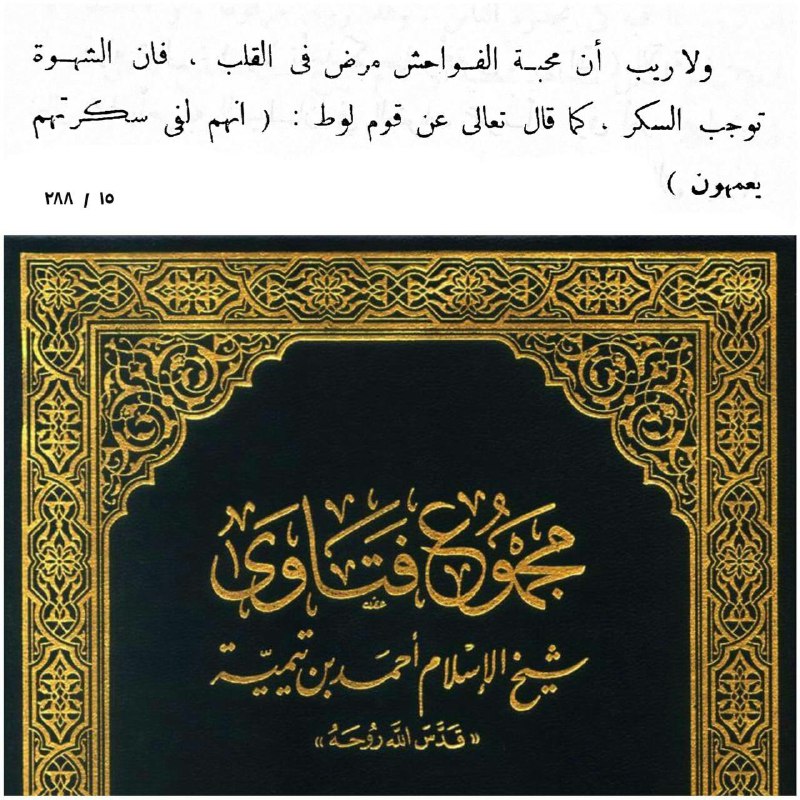 ولا ريب أن محبة الفـواحش مرض فى القلب ، فان الشهـوة
توجب السكر ، كما قال تعالى عن قوم لوط : ( انهم لفى سكرتهم
يعمهون )
١٥ / ٢٨٨
مجموع فتاوى
شيخ الإسلام أحمد بن تيمية
«قَدَّسَ اللَّه رُوحَهُ»